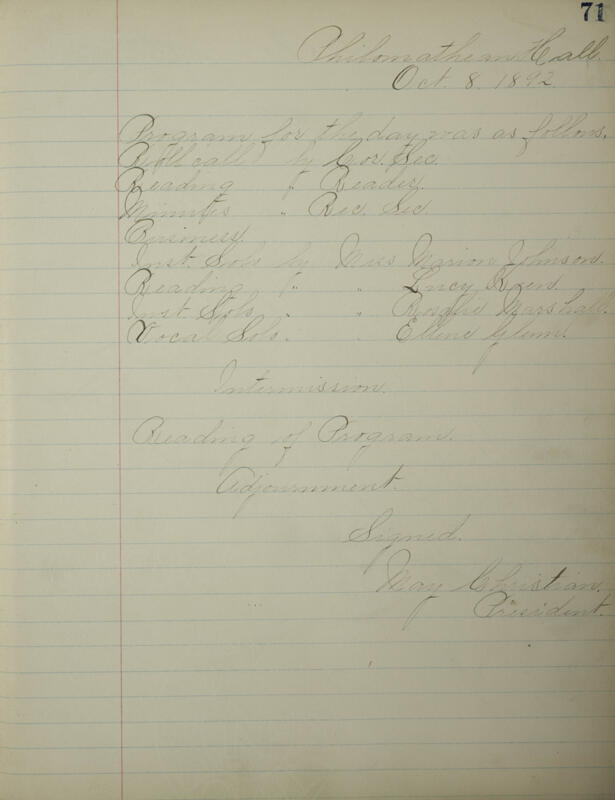 71
Philomathean Hall.
Oct. 8. 1892.
Program for the day was as follows.
Roll call by Cor. Sec.
Reading " Reader.
Minutes " Rec. Sec.
Inst. Solo by Miss Marion Johnson.
Reading " " Lucy
Inst. Solo " " Rosalie Marshall.
Vocal Solo. " Ellene Glenn.
Intermission.
Reading of Program.
Adjournment.
Signed.
May Christian.
President.